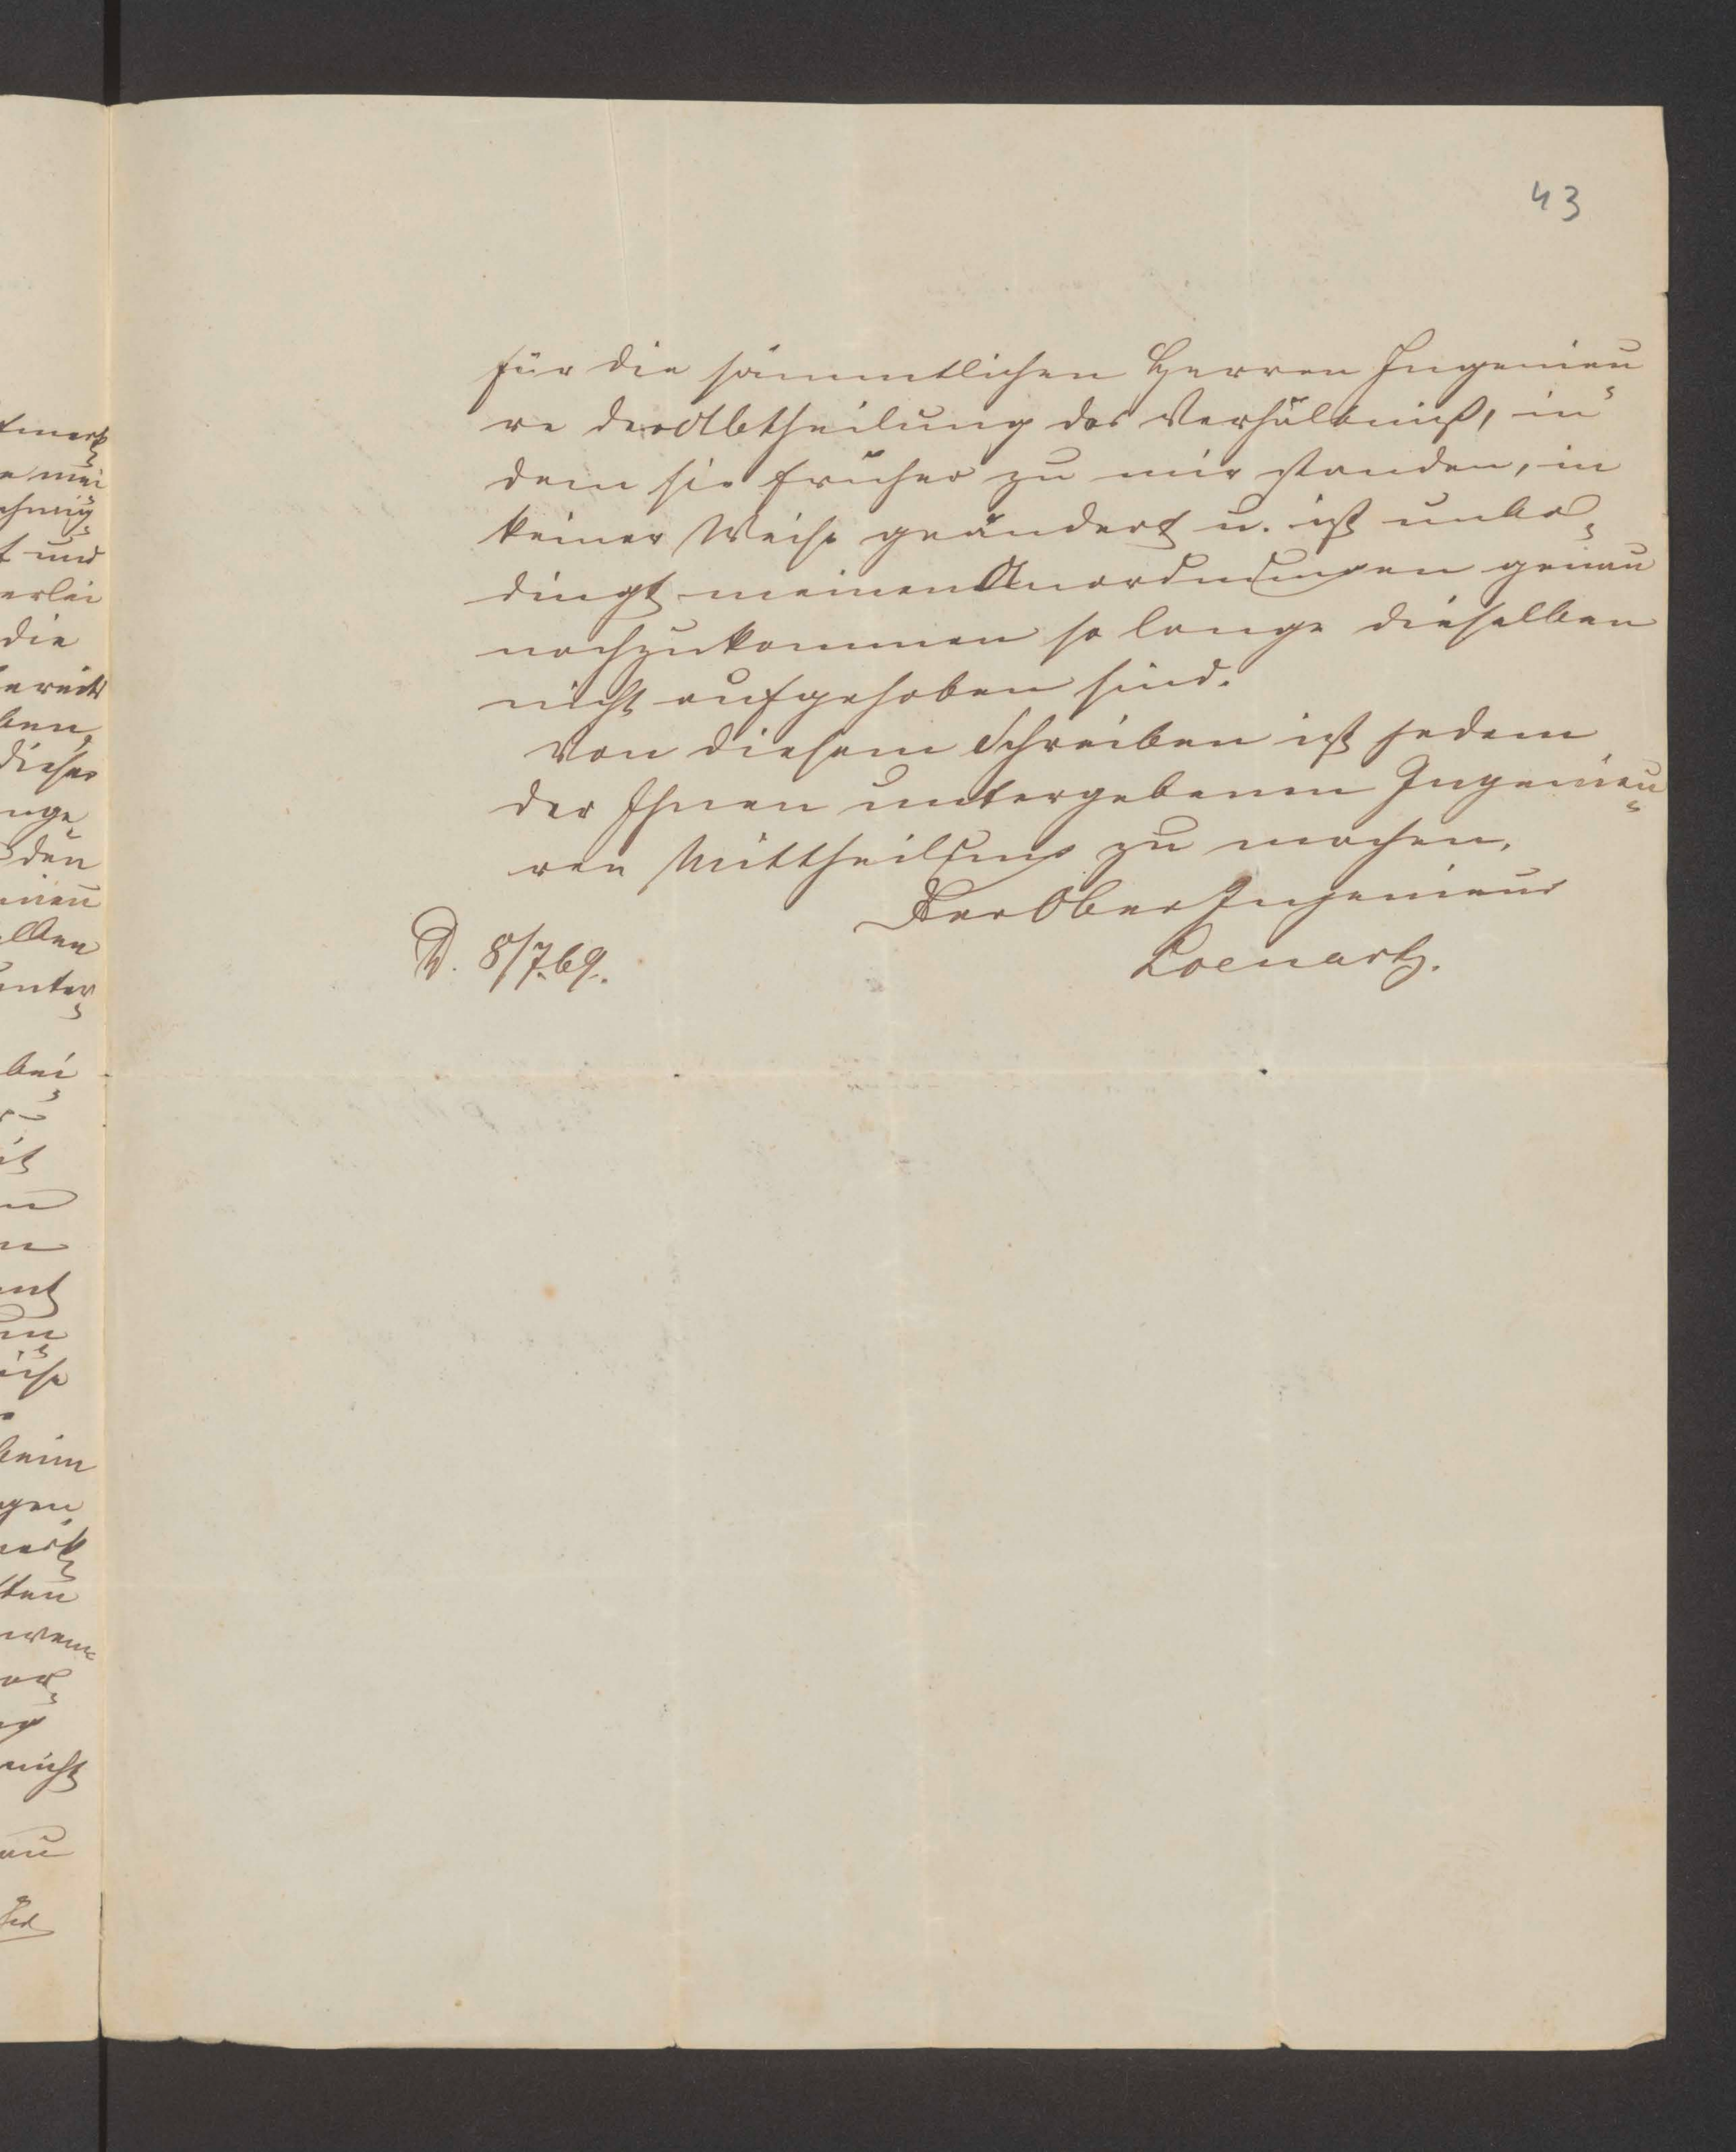 43
für die sämmtlichen Herren Ingenieu-
re der Abtheilung das Verhältniß, in
dem sie früher zu mir standen, in
keiner Weise geändert u. ist unbe-
dingt meinen Anordnungen genau
nachzukommen so lange dieselben
nicht aufgehoben sind.
Von diesem Schreiben ist jedem
der Ihnen untergebenen Ingenieu-
ren Mittheilung zu machen.
Der Ober Ingenieur
D. 8/7.69.
Loenartz.